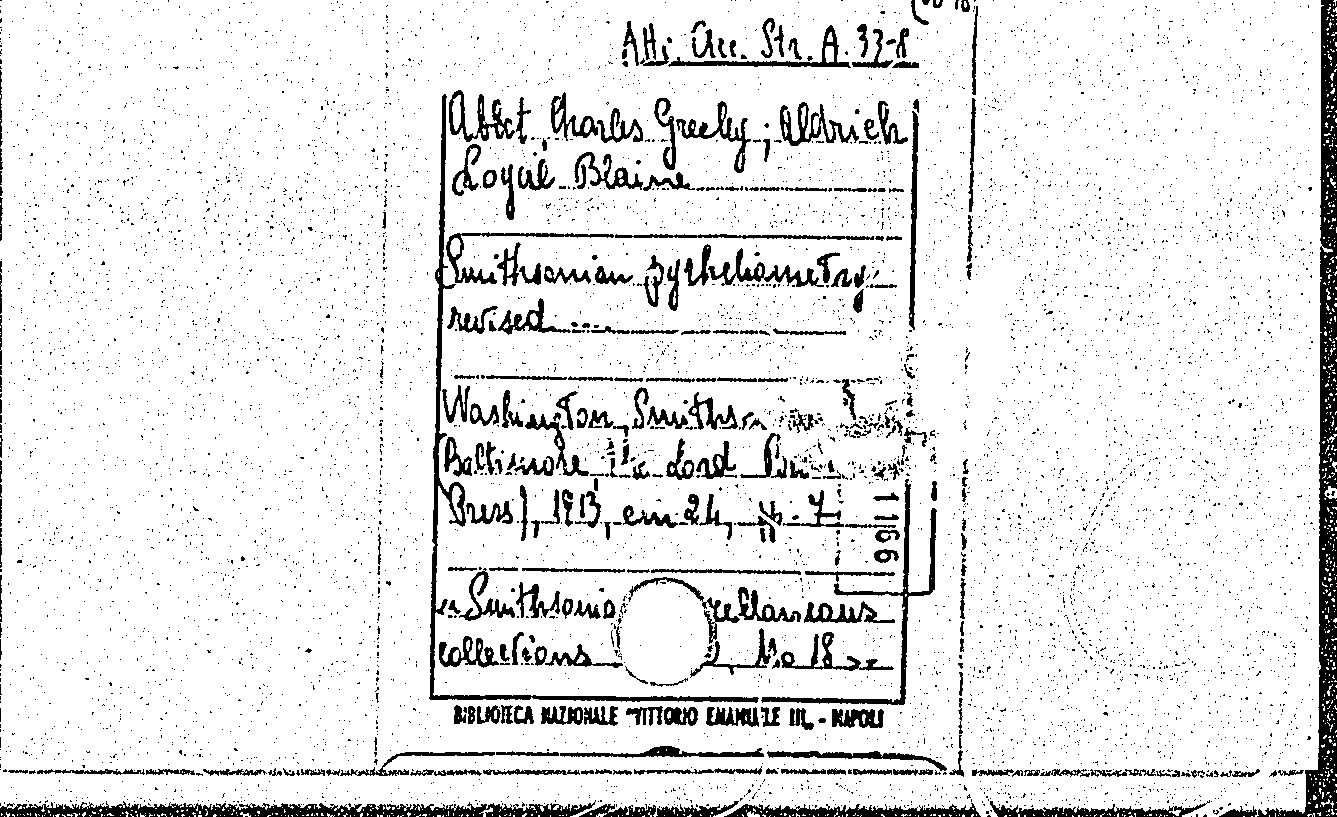 Atti. Acc. Str. A. 33-8
Abbot, Charles Greeley; Aldrich
Loyal Blaine
Smithsonian pyrheliometry
revised ....
Washington, Smiths
Baltimore The Lord
Press), 1913, cm 24, pp. 7
1166
«Smithsonia cellaneous
collections , No 18 »
BIBLIOTECA NAZIONALE "VITTORIO EMANUELE III„ - NAPOLI